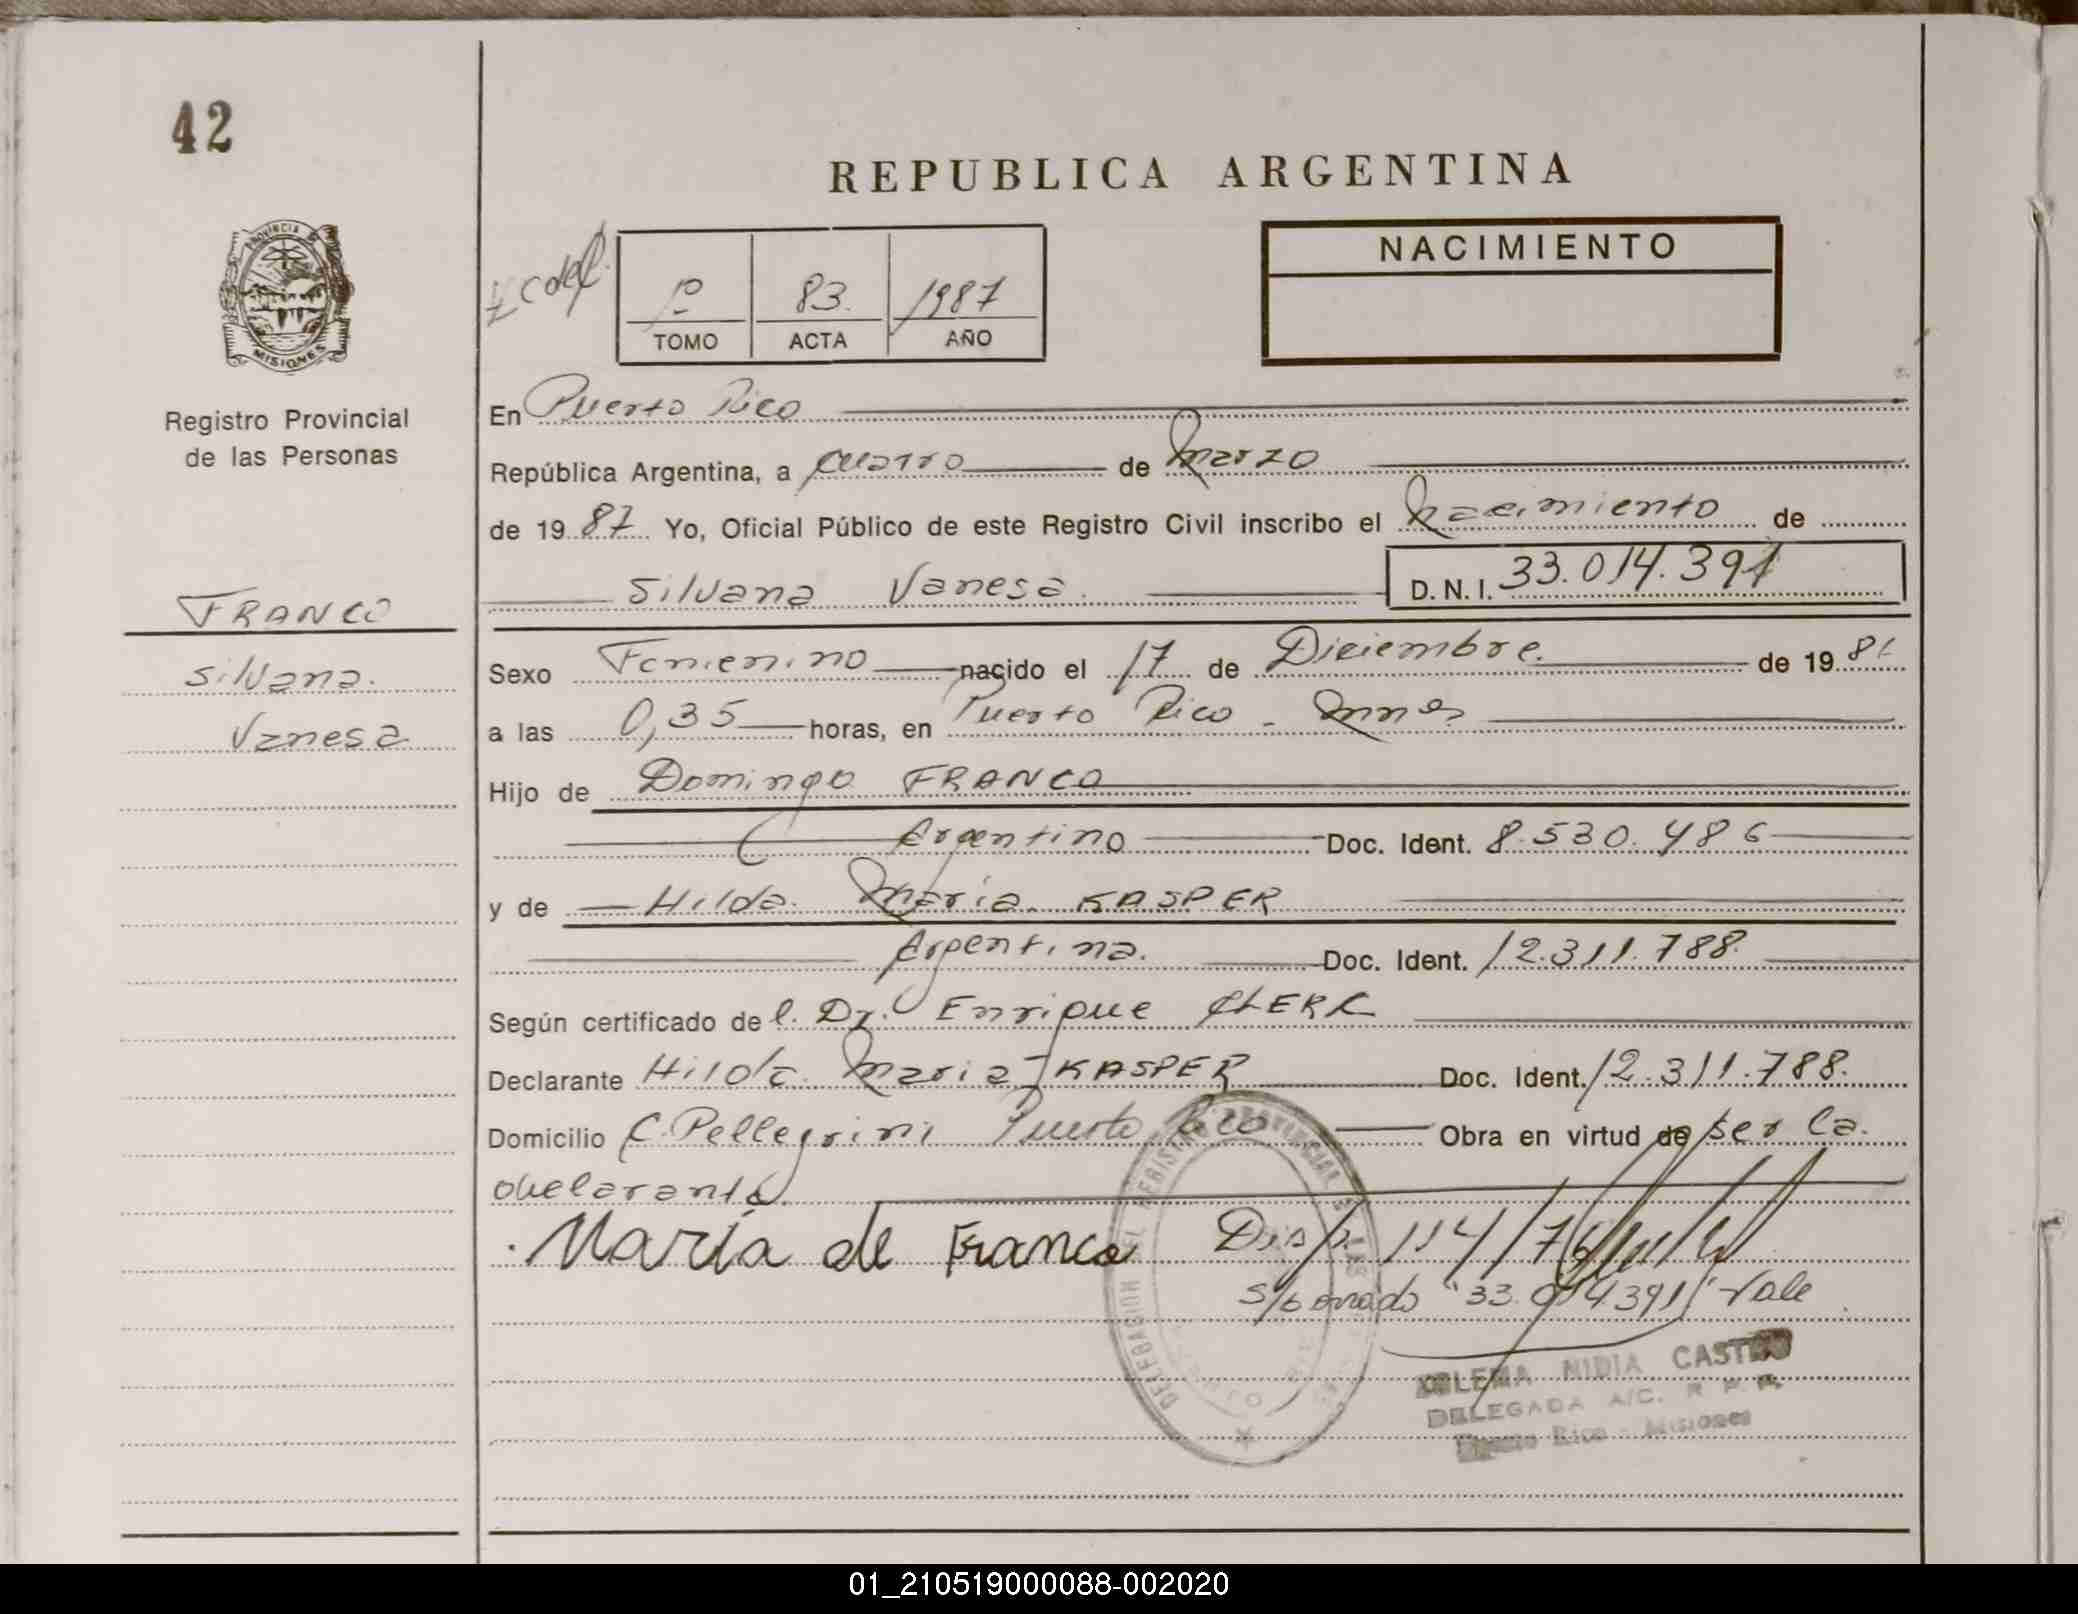 42
REPUBLICA ARGENTINA
PROVINCIA DE
MISIONES
Registro Provincial
de las Personas
1º 83. 1987
TOMO ACTA AÑO
NACIMIENTO
En Puerto Rico
República Argentina, a cuatro de Marzo
de 1987 Yo, Oficial Público de este Registro Civil inscribo el Nacimiento de
Silvana Vanesa. D.N.I. 33.014.391
FRANCO
Silvana.
Vanesa
Sexo Femenino nacido el 17 de Diciembre. de 1986
a las 0,35 horas, en Puerto Rico - Mnes
Hijo de Domingo FRANCO
Argentino Doc. Ident. 8.530.486
y de Hilda María KASPER
Argentina. Doc. Ident. 12.311.788.
Según certificado del. Dr. Enrique CLERC
Declarante Hilda María KASPER Doc. Ident. 12.311.788.
Domicilio C. Pellegrini Puerto Rico Obra en virtud de ser la
declarante.
María de Franco Disp. 114/76
S/borrado "33.014391" Vale
NIDIA CASTRO
DELEGADA A/C. R. P. P.
Puerto Rico - Misiones
01_210519000088-002020